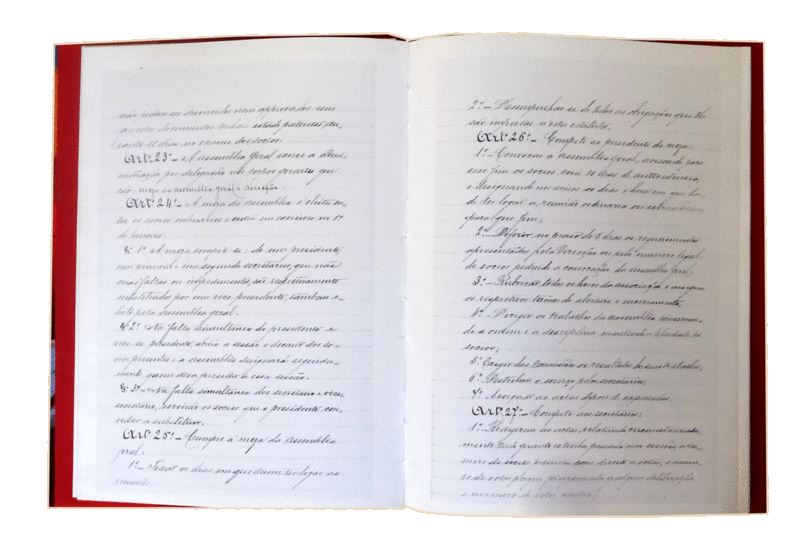 não podem ser discutidos nem approvados sem
que os documentos tenham estado patentes du-
rante 15 dias ao exame dos socios.
Artº 23º— A assembléa geral exerce a admi-
nistração por delegação nos corpos gerentes que
são: mesa da assembléa geral e direcção.
Artº 24º— A mesa da assembléa é eleita en-
tre os socios ordinarios e entra em exercicio em 1º
de Janeiro.
§ 1º A mesa compõe-se: de um presidente,
um primeiro e um segundo secretarios, que nas
suas faltas ou impedimentos, são respectivamente
substituidos por um vice-presidente, tambem e-
leito pela assembléa geral.
§ 2º Na falta simultanea do presidente e
vice-presidente, abrirá a sessão o decano dos so-
cios presentes e a assembléa designará seguida-
mente quem deva presidir a essa sessão.
§ 3º— Na falta simultanea dos secretario e vice-
secretario, servirão os socios que o presidente con-
vidar a substituil-os.
Artº 25º— Cumpre á mesa da assembléa
geral:
1º— Fixar os dias em que devem ter logar as
reuniões.
2º— Desempenhar-se de todas as obrigações que lhe
são impostas n'estes estatutos.
Artº 26º— Compete ao presidente da mesa:
1º— Convocar a assembléa geral, avisando para
esse fim os socios com 10 dias de antecedencia
e designando nos avisos os dias e hora em que ha-
de ter logar a reunião ordinaria ou extraordinaria
e para que fim;
2º— Deferir no praso de 5 dias os requerimentos
apresentados pela Direcção ou pelo numero legal
de socios pedindo a convocação da assembléa geral;
3º— Rubricar todos os livros da associação e assignar
os respectivos termos de abertura e encerramento;
4º— Dirigir os trabalhos da assembléa conservan-
do a ordem e a disciplina mantendo a liberdade dos
socios;
5º Exigir das Commissões os resultados de seus trabalhos;
6º Distribuir o serviço pelos secretarios;
7º Assignar as actas depois de approvadas.
Artº 27º— Compete aos secretarios:
1º Redigirem as actas, relatando circumstanciada-
mente tudo quanto se tenha passado nas sessões, o nu-
mero de socios presentes com direito a votar, o nume-
ro de votos porque foi approvada qualquer deliberação
e o numero de votos contra;